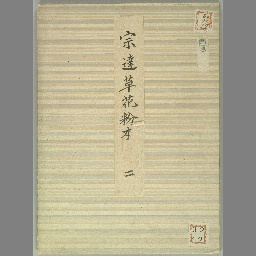 宗達草花粉本 二